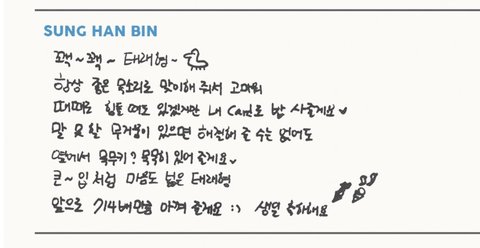 SUNG HAN BIN
꽥~ 꽥~ 태래형~
항상 좋은 목소리로 맞이해 줘서 고마워
때때로 힘들 때도 있겠지만 내 Card로 밥 사줄게요
말 못 할 무거움이 있으면 해결해 줄 수는 없어도
옆에서 묵묵키? 묵묵히 있어 줄게요
큰~ 입처럼 마음도 넓은 태래형
앞으로 714배만큼 아껴 줄게요 :) 생일 축하해요